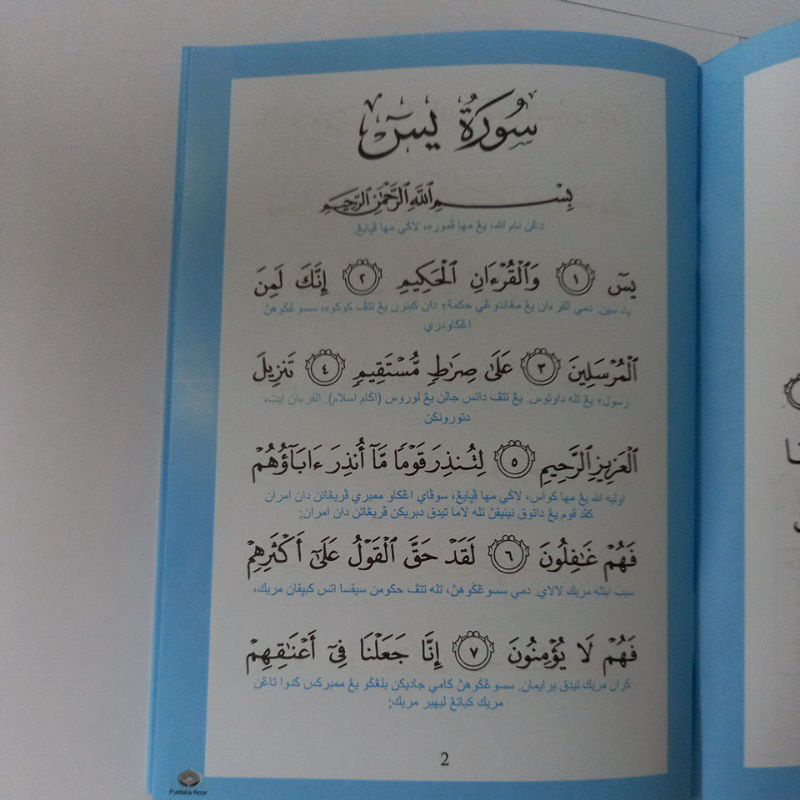 سُورَةُ يسٓ
بِسْمِ ٱللَّهِ ٱلرَّحْمَٰنِ ٱلرَّحِيمِ
دڠن نام الله، يڠ مها ڤموره، لاݢي مها ڤڽايڠ.
يسٓ ١ وَٱلْقُرْءَانِ ٱلْحَكِيمِ ٢ إِنَّكَ لَمِنَ
ياء سين. دمي القرءان يڠ مڠاندوڠي حكمة؛ دان كبنرن يڠ تتڤ كوكوه، سسوڠݢوهڽ
اڠكاودري
ٱلْمُرْسَلِينَ ٣ عَلَىٰ صِرَٰطٍ مُّسْتَقِيمٍ ٤ تَنزِيلَ
رسول؛ يڠ تله داوتوس. يڠ تتڤ داتس جالن يڠ لوروس (اݢام اسلام). القرءان ايت،
دتورونكن
ٱلْعَزِيزِ ٱلرَّحِيمِ ٥ لِتُنذِرَ قَوْمًا مَّآ أُنذِرَ ءَابَآؤُهُمْ
اوليه الله يڠ مها كواس، لاݢي مها ڤڽايڠ، سوڤاي اڠكاو ممبري ڤريڠاتن دان امران
كڤد قوم يڠ داتوق نينيقڽ تله لاما تيدق دبريكن ڤريڠاتن دان امران؛
فَهُمْ غَٰفِلُونَ ٦ لَقَدْ حَقَّ ٱلْقَوْلُ عَلَىٰٓ أَكْثَرِهِمْ
سبب ايتله مريك لالاي. دمي سسوڠݢوهڽ، تله تتڤ حكومن سيقسا اتس كبڽقان مريك،
فَهُمْ لَا يُؤْمِنُونَ ٧ إِنَّا جَعَلْنَا فِىٓ أَعْنَٰقِهِمْ
كران مريك تيدق برايمان. سسوڠݢوهڽ كامي جاديكن بلڠݢو يڠ ممبركس كدوا تاڠن
مريك كباتڠ ليهير مريك؛
2
Pustaka Nour